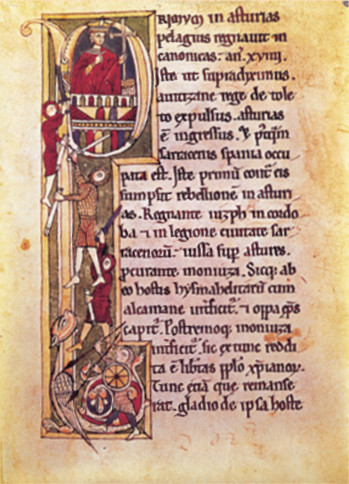 PRIMUM in asturias
pelagius regnauit in
canonicas· an̄· xviiii·
Iste ut supradiximus·
auitizane rege de tole
to expulsus· asturias
ē ingressus· & p̓q̄m
sarracenos spania occu
pata est· Iste primū cont̄ eis
sumpsit rebellionē in asturi
as· Regnante iuzeph in cordo
ba ⁊ in legione ciuitate sar
racenoꝝ· iussa suꝑ astures·
ꝓcurante moniuza· Sicq; ab
eo hostis hysmahelitarū cum
alcamane int̓ficit̓· & oppa eps̄
capit̓· Postremoq; moniuza
int̓ficit̓· sic ex tunc reddi
ta ē lib̓tas pplo xp̄ianoꝝ·
Tunc etiā que remanse
rat· gladio de ipsa hoste